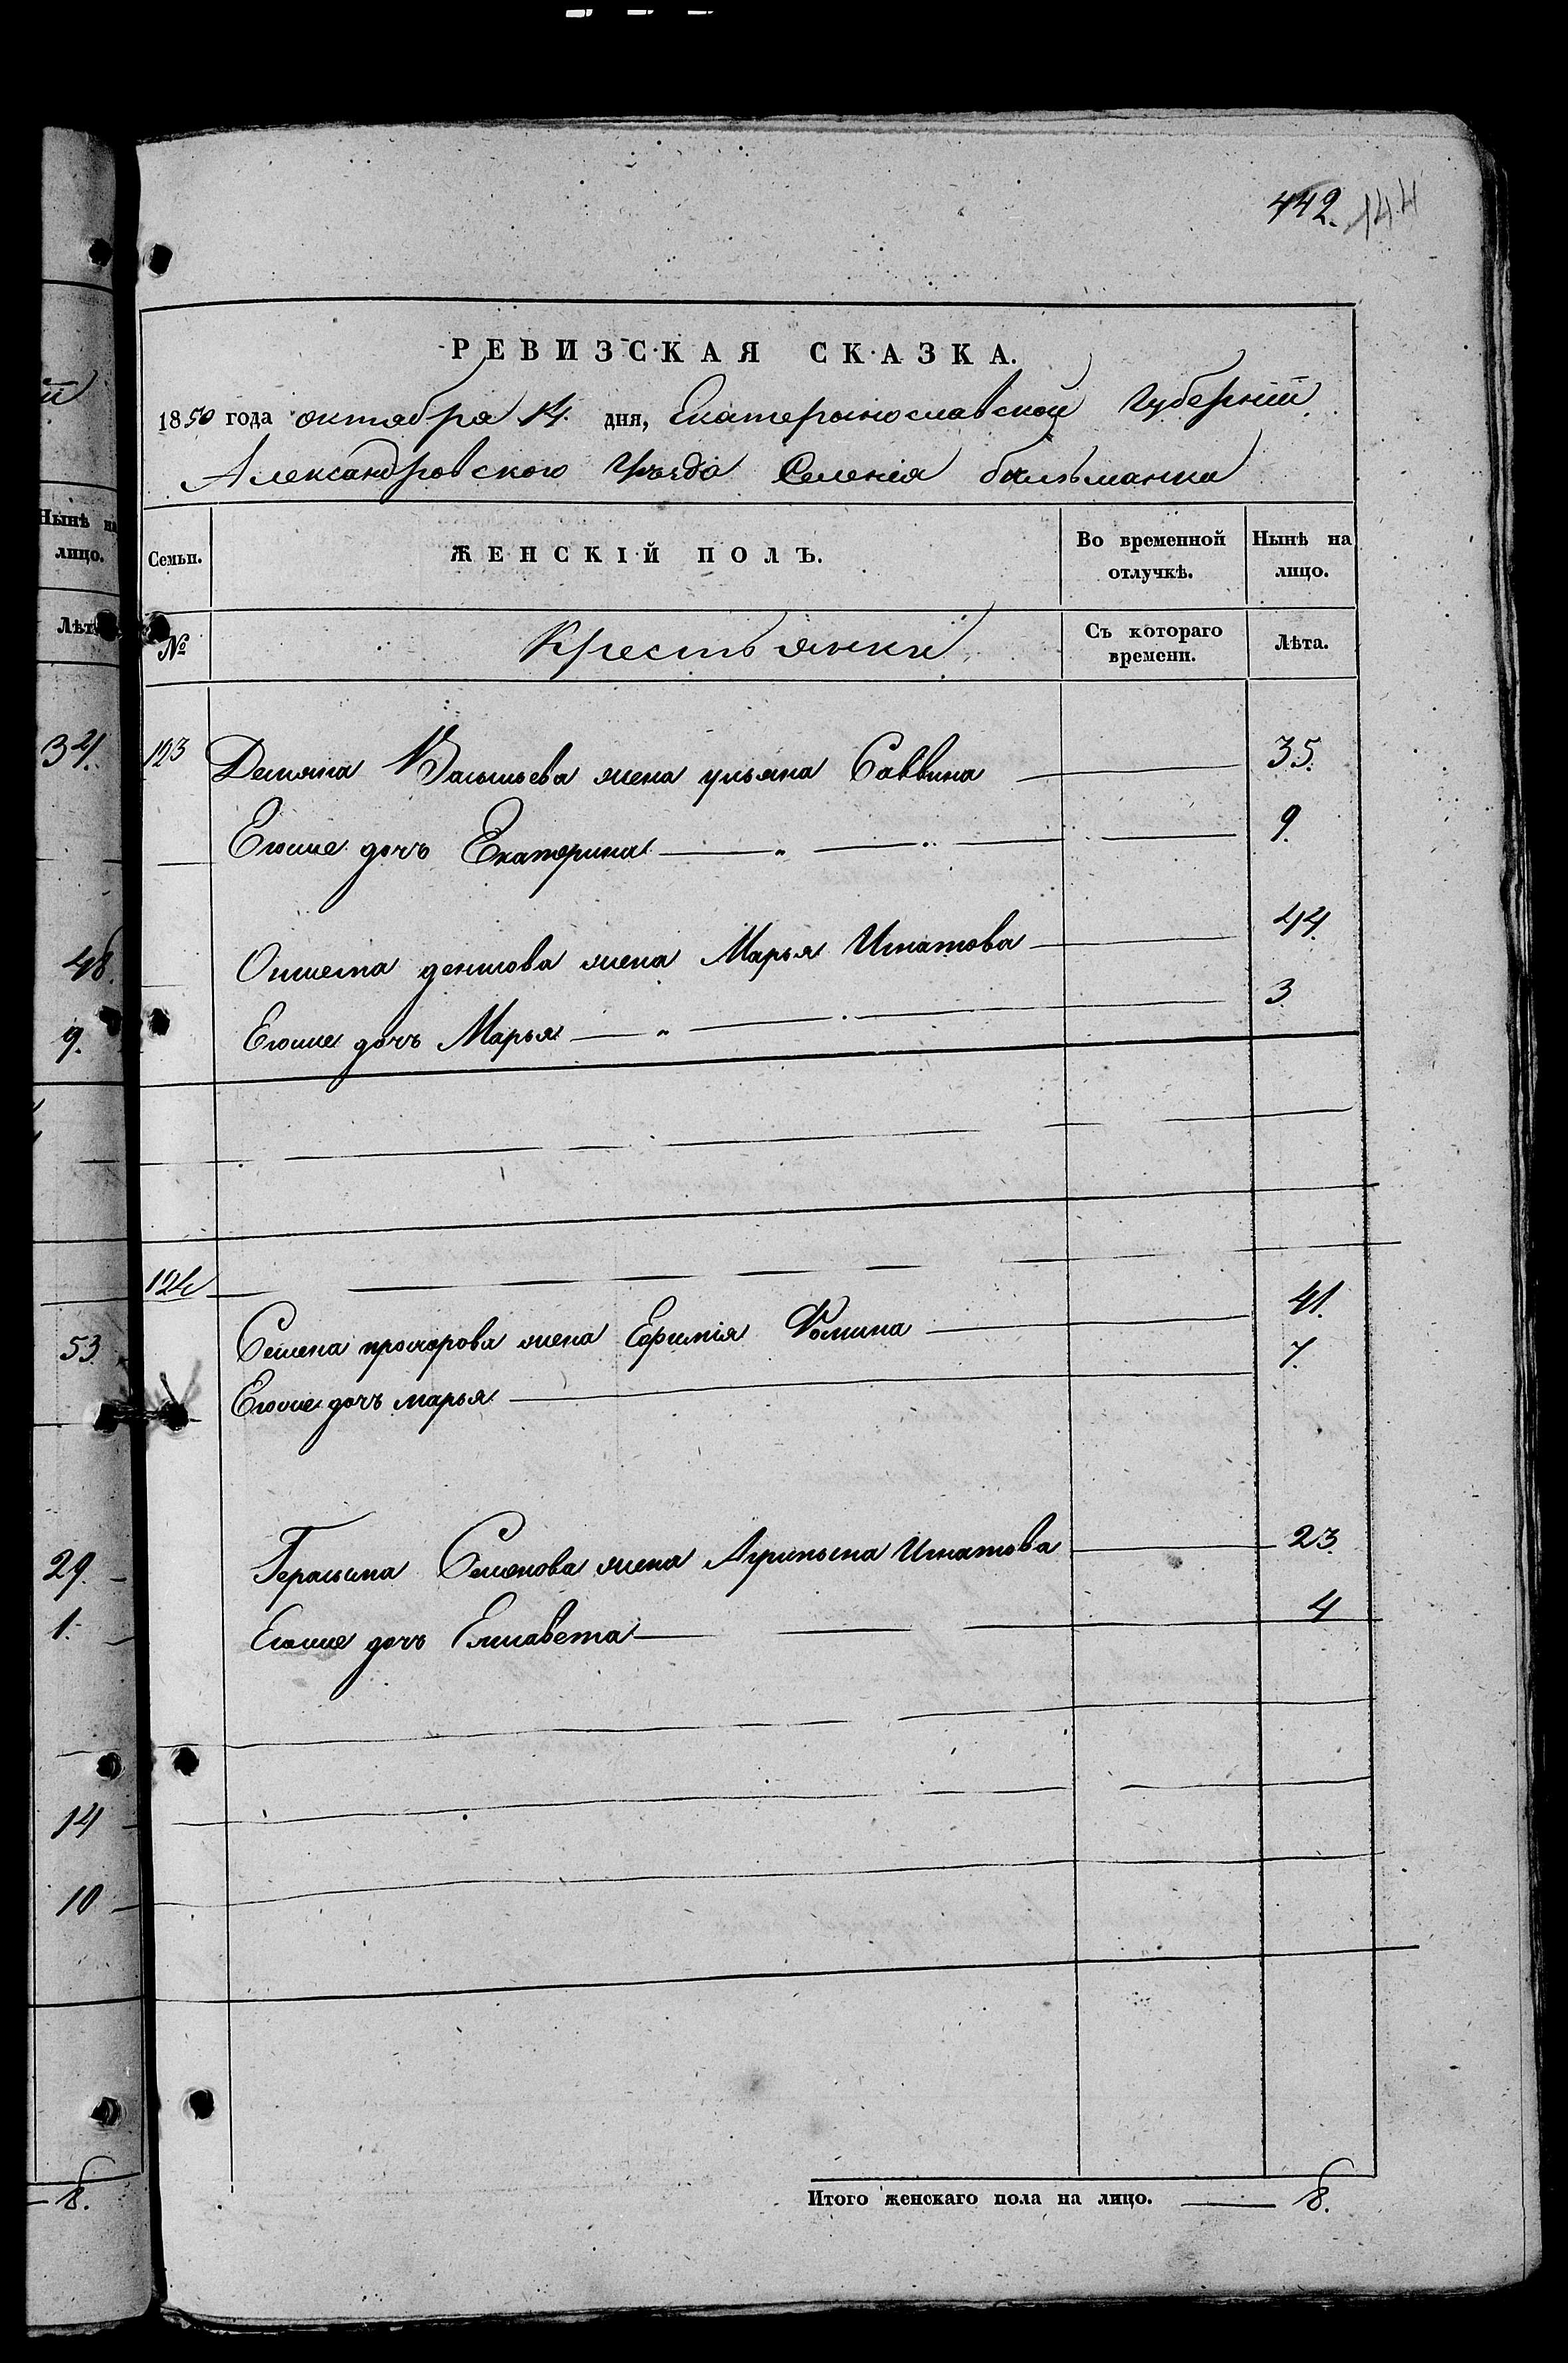 442. 144
РЕВИЗСКАЯ СКАЗКА.
1850 года октября 14. дня, Екатеринославской Губерніи
Александровского Уѣзда Селенія бильманки
Нынѣ на лицо.
Семьи.
ЖЕНСКІЙ ПОЛЪ.
Во временной отлучкѣ.
Нынѣ на лицо.
Лѣта
№
Крестьянки
Съ котораго времени.
Лѣта.
34. 123 Демяна Васильева жена ульяна Саввина 35.
Егоже дочь Екатерина 9.
44.
48. денисова жена Марья Игнатова
9. Егоже дочь Марья 3
124
53. Семена прохорова жена Ефимія Фомина 41.
Егоже дочь марья 7.
29. Герасима Семенова жена Агрипына Игнатова 23.
1. Егоже дочь Елисавета 4
14
10
8. Итого женскаго пола на лицо. 8.